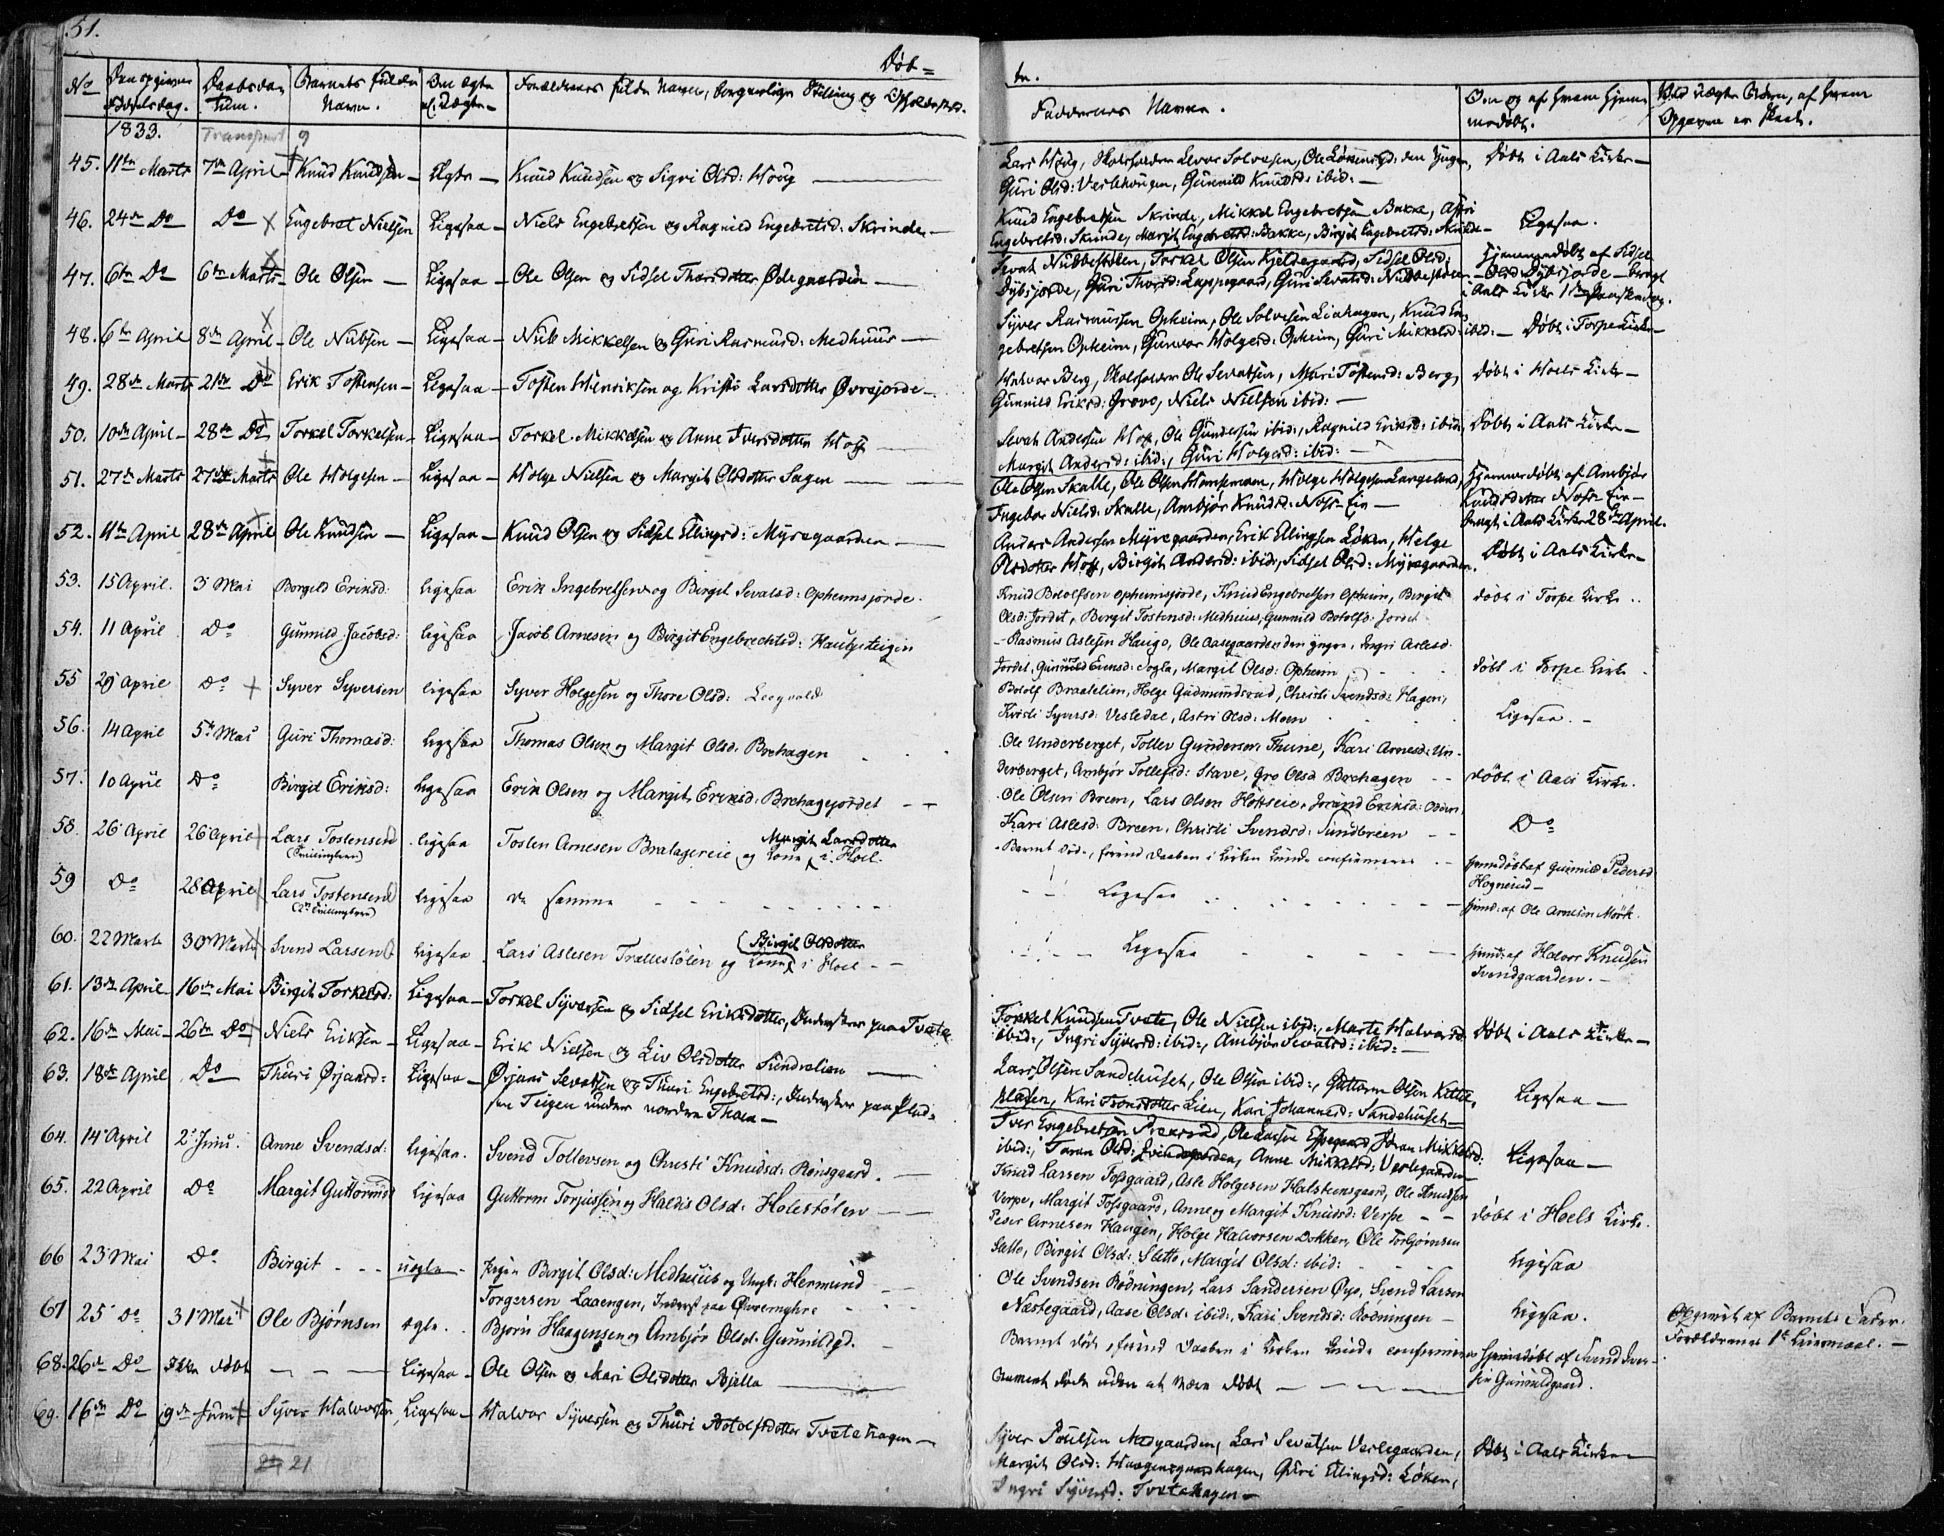 51.
Døb=
No
Den opgivne
Fødselsdag.
Daabsda-
tum.
Barnets fulde
Navn.
Om ægte
el. Uægte
Forældrenes fulde Navn, borgerlige Stilling og Opholdssted.
1833.
Transport 9
45. 11te Marts 7de April Knud Knudsen Ægte Knud Knudsen og Sigri Olsd: Houg
46. 24de Do Do Engebret Nielsen Ligesaa Niels Engebretsen og Ragnild Engebretsd: Skrinde
47. 6te Do 6te Marts Ole Olsen Ligesaa Ole Olsen og Sidsel Thorsdotter Ødegaarden
48. 6te April 8de April Ole Nubsen Ligesaa Nub Mikkelsen og Guri Rasmusd: Medhuus
49. 28de Marts 21de Do Erik Tostensen Ligesaa Tosten Henriksen og Kristi Larsdotter Øvrejorde
50. 10de April 28de Do Torkel Torkelsen Ligesaa Torkel Mikkelsen og Anne Iversdotter Hoff
51. 27de Marts 27de Marts Ole Holgesen Ligesaa Holge Nielsen og Margit Olsdotter Sagen
52. 11te April 28de April Ole Knudsen Ligesaa Knud Olsen og Sidsel Ellingsd: Myregaarden
53. 15 April. 3 Mai Borgild Eriksd: Ligesaa Erik Ingebretsen og Birgit Sevatsd: Opheimsjorde.
54. 11 April Do Gunnild Jacobsd: Ligesaa Jacob Arnesen og Birgit Engebrechtsd:
55 29 April Do Syver Syversen ligesaa Syver Holgesen og Thore Olsd:
56. 14 April 5te Mai Guri Thomasd: Ligesaa Thomas Olsen og Margit Olsd: Brehagen
57. 10 April Do Birgit Eriksd: Ligesaa Erik Olsen og Margit Eriksd: Brehagejordet
58. 26 April 26 April Lars Tostensen ligesaa Tosten Arnesen Bratagereie og Kone i Hoel.
Margit Larsdotter
59 Do 28 April Lars Tostensen Ligesaa de samme
60. 22 Marts 30 Marts Svend Larsen ligesaa Lars Aslesen Trællestølen og Kone i Hoel
Birgit Olsdotter
61. 13de April 16de Mai Birgit Torkelsd: Ligesaa Torkel Syversen og Sidsel Eriksdotter, Inderster paa Tveta
62. 16de Mai 26de Do Niels Eriksen Ligesaa Erik Nielsen og Liv Olsdotter Sundrelien
63. 18de April Do Thuri Ørjansd: Ligesaa Ørjans Sevatsen og Thuri Engebretsd:, Inderster paa Plad-
sen Teigen under nordre Thoen
64. 14 April 2 Juni. Anne Svendsd: Ligesaa. Svend Tollevsen og Christi Knudsd:
65. 22 April Do Margit Guttormsd Ligesaa Guttorm Torjussen og Haldis Olsd: Holestølen
66 23 Mai Do Birgit uægte Pigen Birgit Olsd: Medhuus og Ungk: Hermund
Torgersen Laaengen, Inderst paa Øvremyhre
67 25 Do 31 Mai Ole Bjørnsen ægte. Bjørn Haagensen og Ambjør Olsd: Gunnildsgd.
68. 26de Do Ikke døbt Ligesaa Ole Olsen og Mari Olsdotter Bjella
69. 16de Do 9de Juni Syver Halvorsen Ligesaa Halvor Syversen og Thuri Botolfsdotter Tvetehagen
21
te.
Faddernes Navne.
Om og af hvem hjem-
medøbt.
Ved uægte Børn, af hvem
Opgaven er skeet.
Lars Houg, Skoleholder Levor Solvesen, Ole Løkensgd: den Yngre, Døbt i Aals Kirke
Guri Olsd: Veslehougen, Gunnild Knudsd: ibid:
Knud Engebretsen Skrinde, Mikkel Engebretsen Bakke, Astri Ligesaa.
Engebretsd: Skrinde, Margit Engebretsd: Bakke, Birgit Engebretsd: Skrinde
Sevat Nubbestølen, Torkel Olsen Kjeldegaard, Sidsel Olsd: Hjemmedøbt af Sidsel
Dybsjorde, Guri Thorsd: Lappegaard, Guri Sevatsd: Nubbestølen Olsd: Dybsjorde bragt
i Aals Kirke 1ste Paaskedag.
Syver Rasmussen Opheim, Ole Solvesen Liahagen, Knud En-
gebretsen Opheim, Gunvor Holgesd: Opheim, Guri Mikkelsd: ibid: Døbt i Torpe Kirke
Halvor Berg, Skoleholder Ole Sevatsen, Mari Tostensd: Berg, Døbt i Hoels Kirke
Gunnild Eriksd: Grove, Niels Nielsen ibid:
Sevat Andersen Hoff, Ole Gundersen ibid:, Ragnild Eriksd: ibid: Døbt i Aals Kirke
Margit Andersd: ibid:, Guri Holgesd: ibid:
Ole Olsen Skalle, Ole Olsen, Holge Holgesen Langeland, Hjemmedøbt af Ambjør
Ingebor Nielsd: Skalle, Ambjør Knudsd: Noss-Eie Knudsdotter Noss-Eie
bragt i Aals Kirke 28de April.
Anders Andersen Myregaarden, Erik Ellingsen Løken, Helge Døbt i Aals Kirke
Olsdotter Hoff, Birgit Andersd: ibid:, Sidsel Olsd: Myregaarden.
Knud Botolfsen Opheimsjorde, Knud Engebretsen Opheim, Birgit døbt i Torpe Kirke
Olsd: Jordet, Birgit Tostensd: Medhuus, Gunnild Botolfsd: Jordet
Rasmus Aslesen Haugo, Ole Aasegaarden den yngre, Ingri Aslesd:
Jordet, Gunnild Evensd: Sogla, Margit Olsd: Opheim døbt i Torpe Kirke
Botolf Braatelien, Holge Gudmundsrud, Christi Svendsd: Hagen, Ligesaa.
Kristi Syversd: Vesledal, Astri Olsd: Moen
Ole Underberget, Tollev Gundersen Thune, Kari Arnesd: Un-
derberget, Ambjør Tollefsd: Stave, Gro Olsd Brehagen døbt i Aals Kirke.
Ole Olsen Breen, Lars Olsen Hoftseie, Jorand Eriksd:
Kari Aslesd: Breen, Christi Svendsd: Sundbreen Do
Barnet døde, førend Daaben i Kirken kunde confirmeres hjemdøbt af Gunnild Pedersd
Ligesaa hjemd: af Ole Arnesen Mørk.
Ligesaa hjemd: af Halvor Knudsen
Svendgaarden.
Torkel Knudsen Tvete, Ole Nielsen ibid:, Marte Halvorsd: Døbt i Aals Kirke
ibid:, Ingri Syversd: ibid:, Ambjør Sevatsd: ibid:
Lars Olsen Sandehuset, Ole Olsen ibid:, Guttorm Olsen Kittels- Ligesaa
pladsen, Kari Lien, Kari Johannesd: Sandehuset
Iver Engebretsen, Ole Larsen Espegaard, Joran Mikkelsd: Ligesaa
ibid:, Joran Olsd:, Anne Mikkelsd: Veslegaarden
Knud Larsen Fosgaard, Asle Holgesen Halsteensgaard, Ole Knudsen
Verpe, Margit Fosgaard, Anne og Margit Knudsd: Verpe døbt i Hoels Kirke.
Peder Arnesen Haugen, Holge Halvorsen Dokken, Ole Torbjørnsen
Slette, Birgit Olsd: Slette, Margit Olsd: ibid: Ligesaa
Ole Svendsen Rødningen, Lars Sandersen Øyo, Svend Larsen
Næstegaard, Aase Olsd: ibid:, Kari Svendsd: Rødningen Ligesaa. Opgivet af Barnets Fader.
Forældrenes 1ste Leiermaal.
Barnet døde, førend Daaben i Kirken kunde confirmeres hjemdøbt af Svend Iver-
sen Gunnildgaard.
Barnet døde uden at være døbt
Syver Poulsen Medgaarden, Lars Sevatsen Veslegaarden, Døbt i Aals Kirke
Margit Olsd: Haagensgaardhagen, Guri Ellingsd: Løken,
Ingri Syversd: Tvetehagen